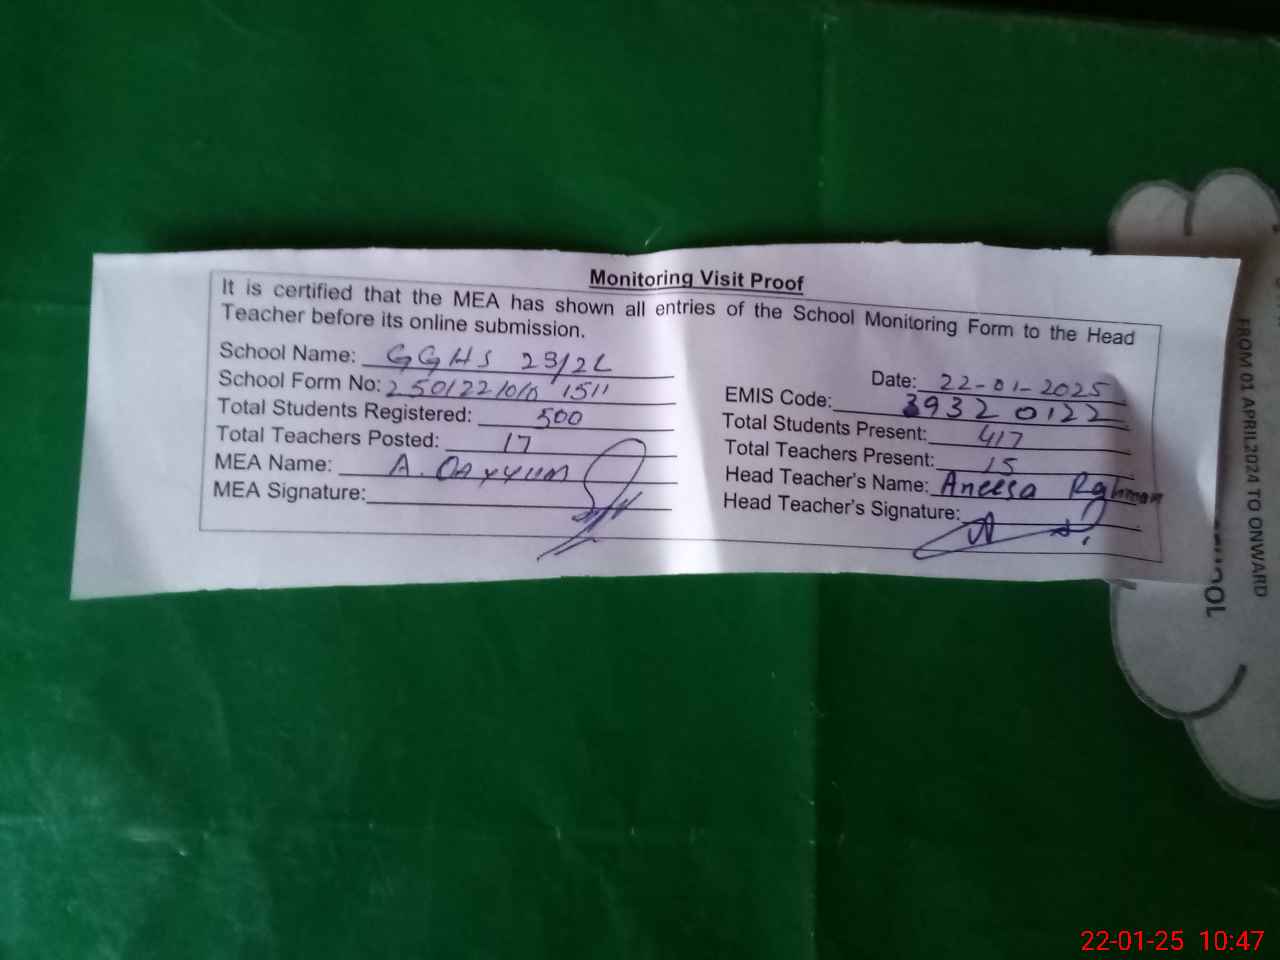 Monitoring Visit Proof
It is certified that the MEA has shown all entries of the School Monitoring Form to the Head
Teacher before its online submission.
School Name: GGHS 23/2L
Date: 22-01-2025
School Form No:
EMIS Code: 39320122
Total Students Registered: 500
Total Students Present: 417
Total Teachers Posted: 17
Total Teachers Present: 15
MEA Name: A. Qayyum
Head Teacher's Name: Aneesa Rahman
MEA Signature:
Head Teacher's Signature:
FROM 01 APRIL2024 TO ONWARD
22-01-25 10:47